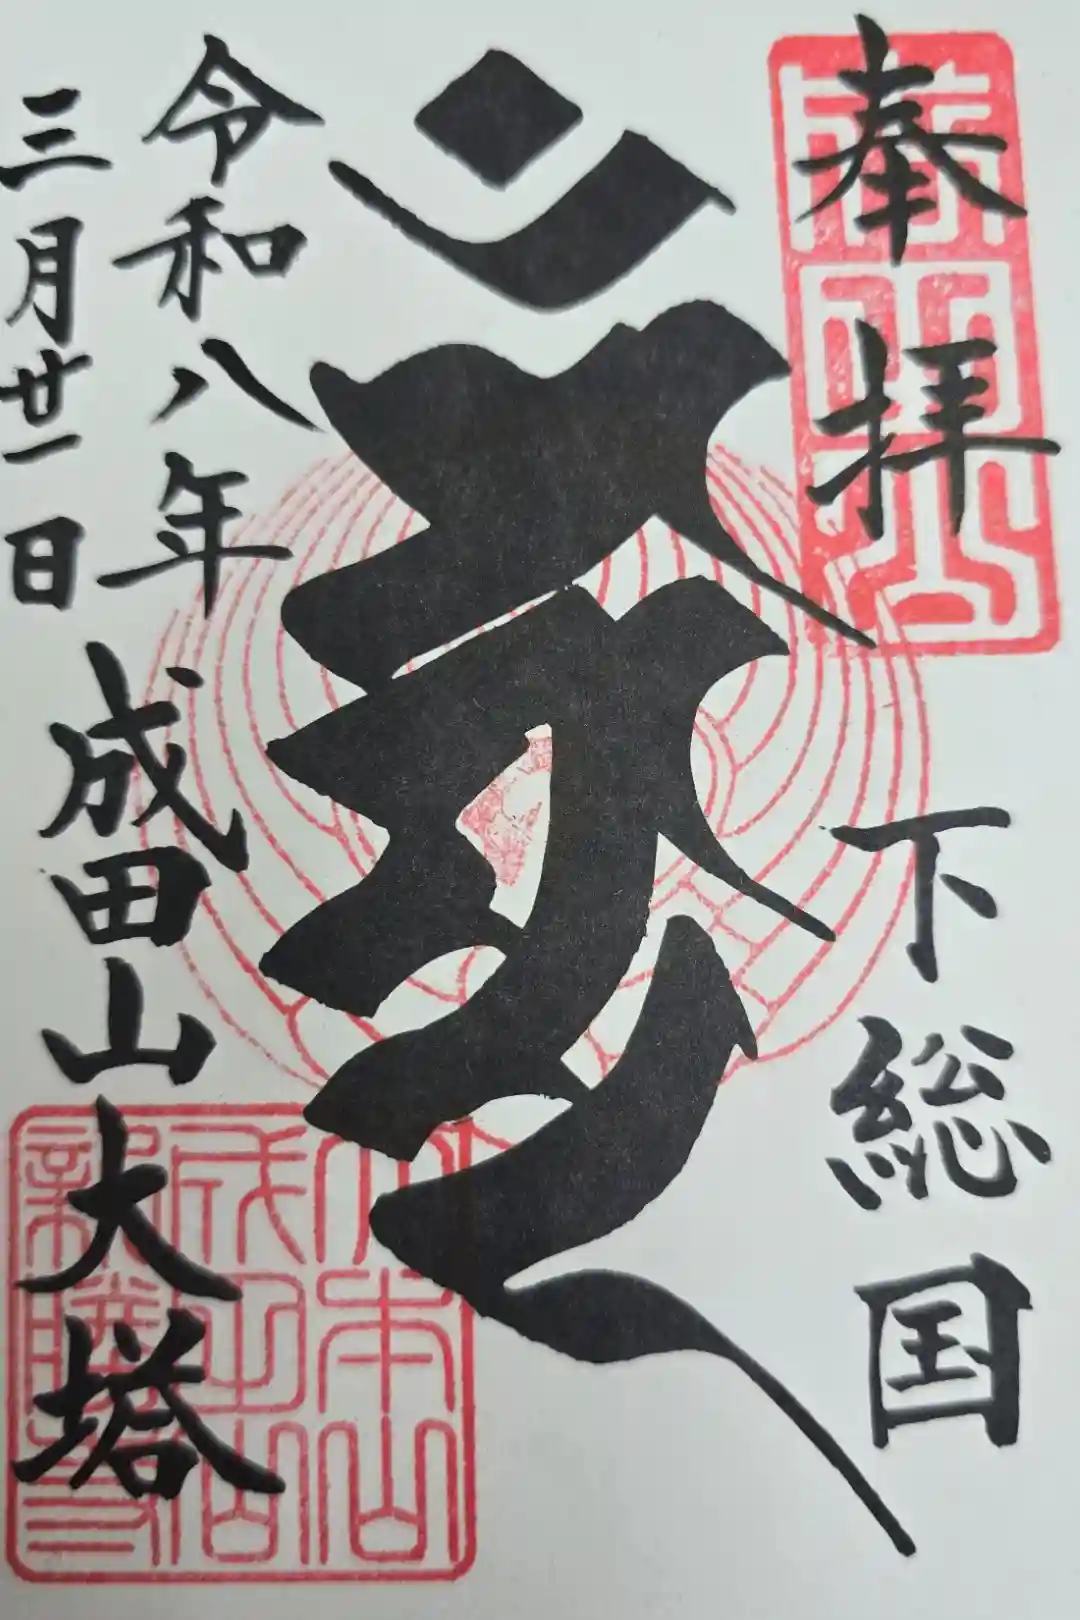 奉拝
下総国
令和八年
三月廿一日
成田山大塔
成田山
大本山
成田山
新勝寺